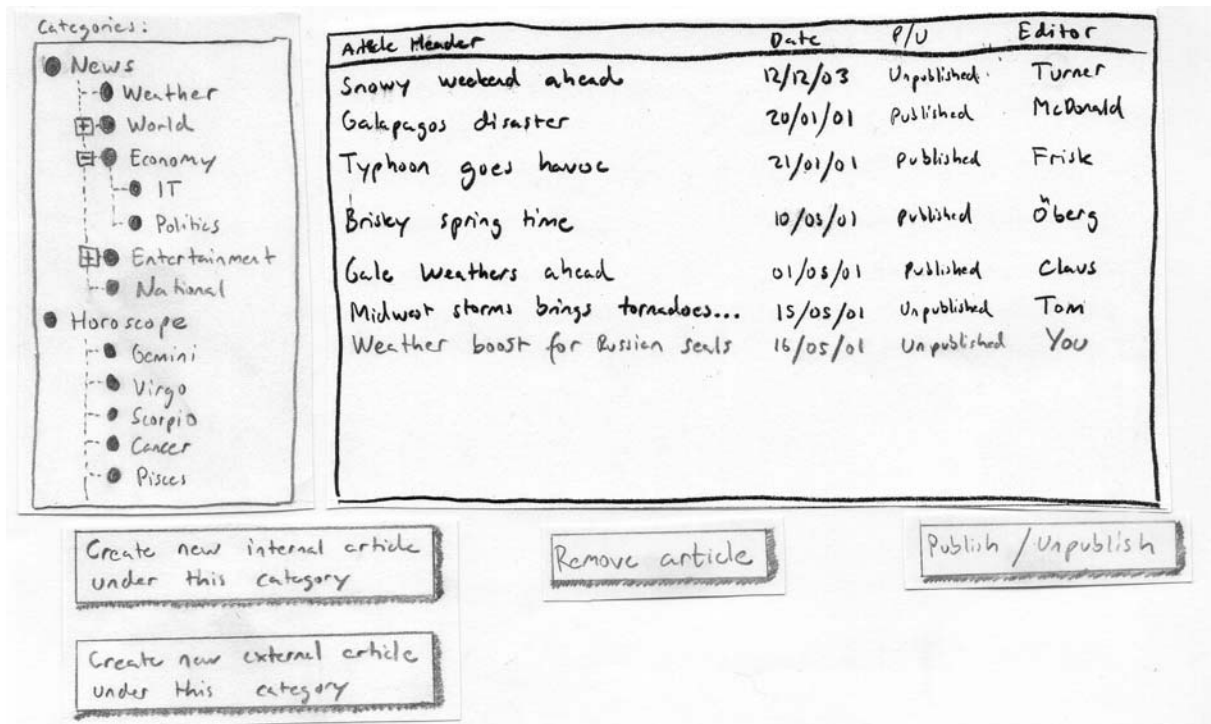 Categories:
News
Weather
World
Economy
IT
Politics
Entertainment
National
Horoscope
Gemini
Virgo
Scorpio
Cancer
Pisces
Article Header Date P/U Editor
Snowy weekend ahead 12/12/03 Unpublished Turner
Galapagos disaster 20/01/01 Published McDonald
Typhoon goes havoc 21/01/01 Published Frisk
Briskey spring time 10/03/01 Published Öberg
Gale Weathers ahead 01/05/01 Published Claus
Midwest storms brings tornadoes... 15/05/01 Unpublished Tom
Weather boost for Russian seals 16/05/01 Unpublished You
Create new internal article
under this category
Remove article
Publish / Unpublish
Create new external article
under this category